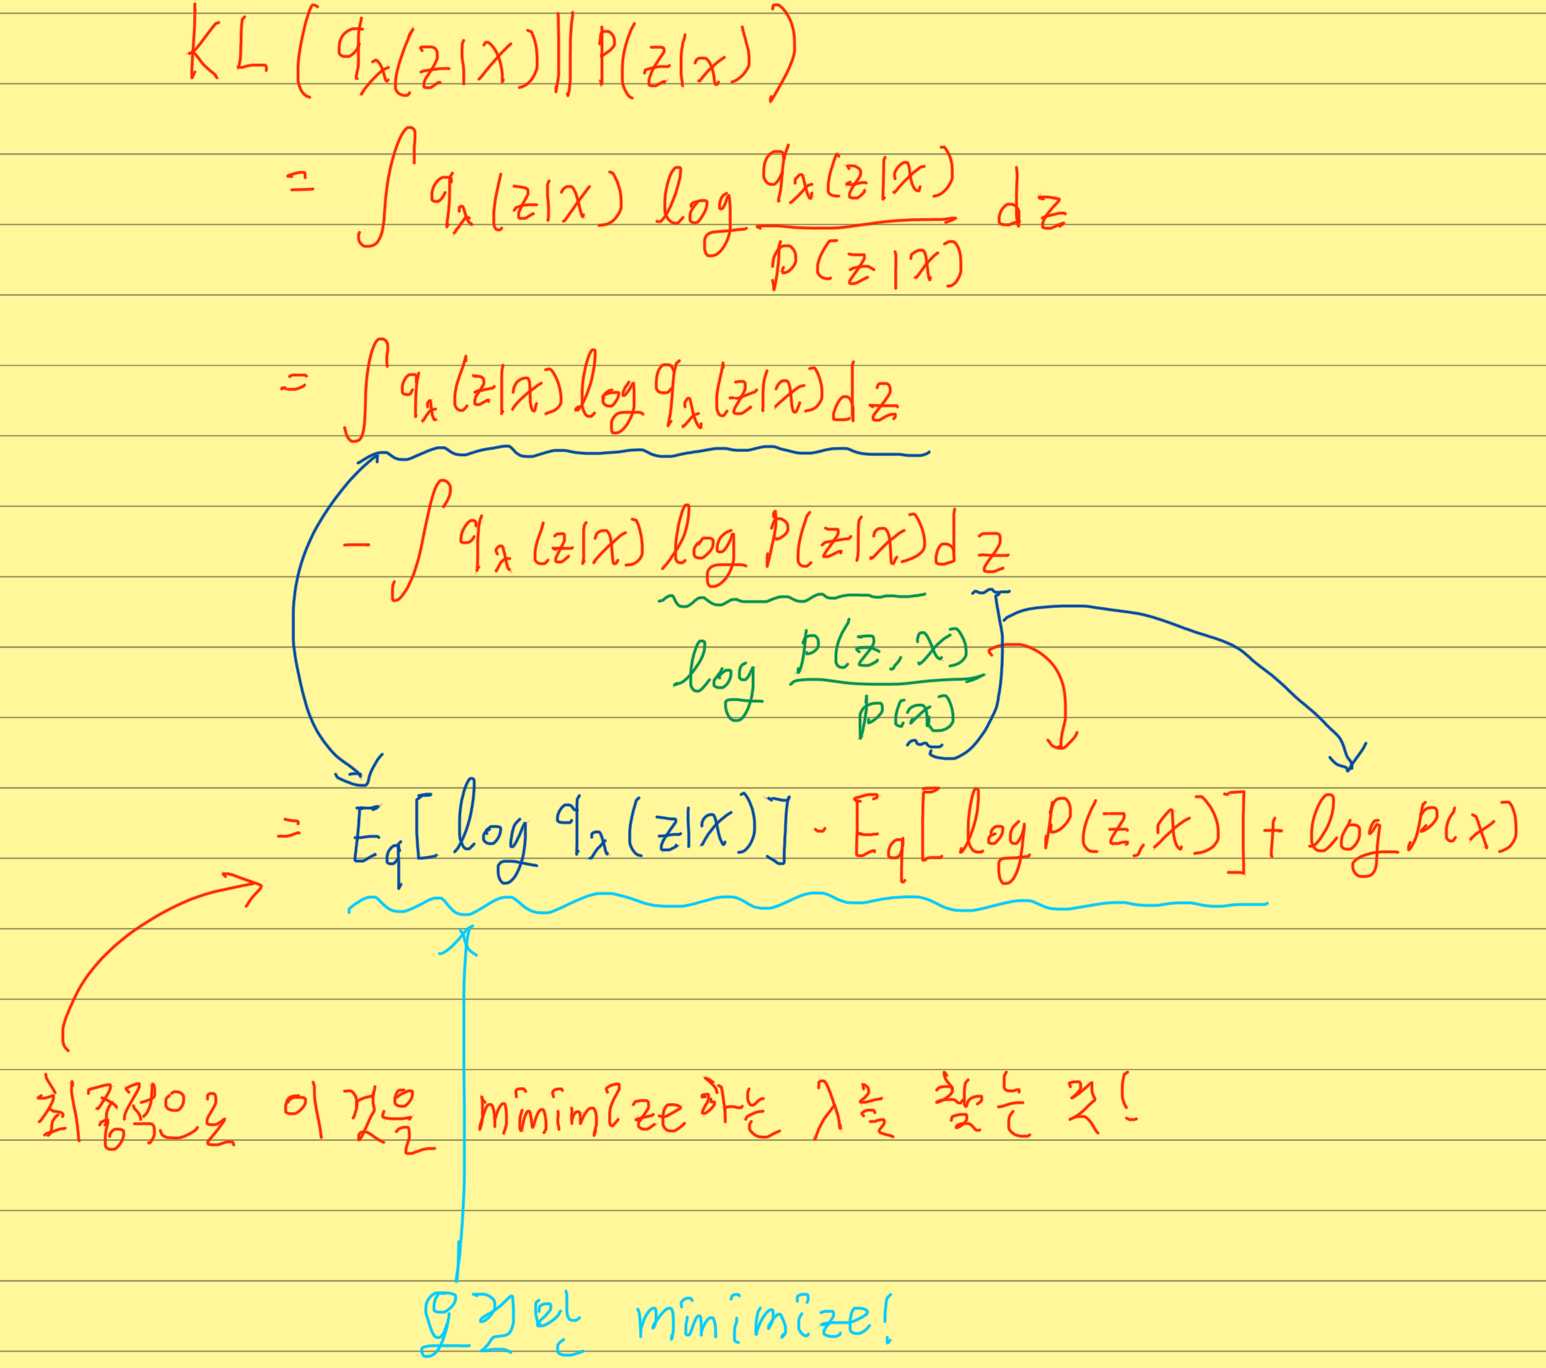 KL ( q_λ(z|x) || p(z|x) )
= ∫ q_λ(z|x) log q_λ(z|x) / p(z|x) dz
= ∫ q_λ(z|x) log q_λ(z|x) dz
- ∫ q_λ(z|x) log p(z|x) dz
log p(z,x) / p(x)
= E_q[log q_λ(z|x)] - E_q[log p(z,x)] + log p(x)
최종적으로 이것을 minimize하는 λ를 찾는 것!
요걸만 minimize!